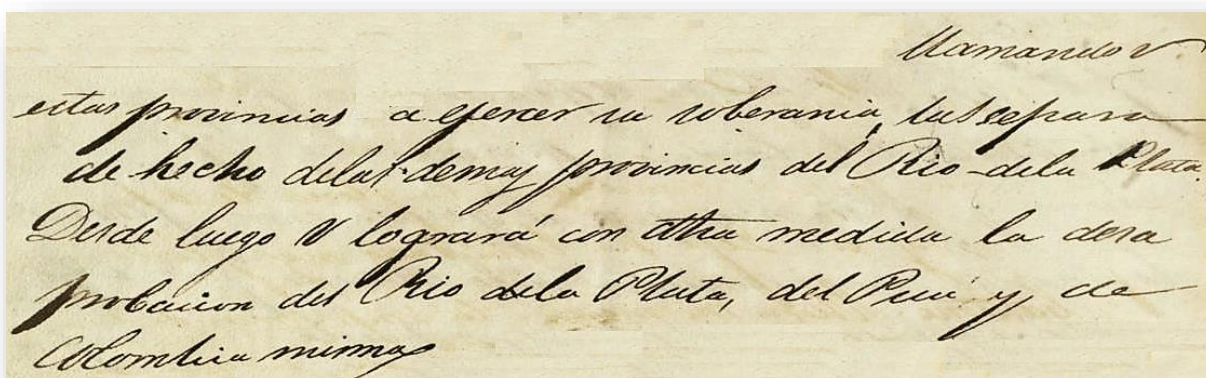 llamando V
estas provincias a ejercer su soberania, las separa
de hecho delas demas provincias del Rio dela Plata.
Desde luego V logrará con dha medida la desa
probacion del Rio dela Plata, del Perú y de
Colombia misma